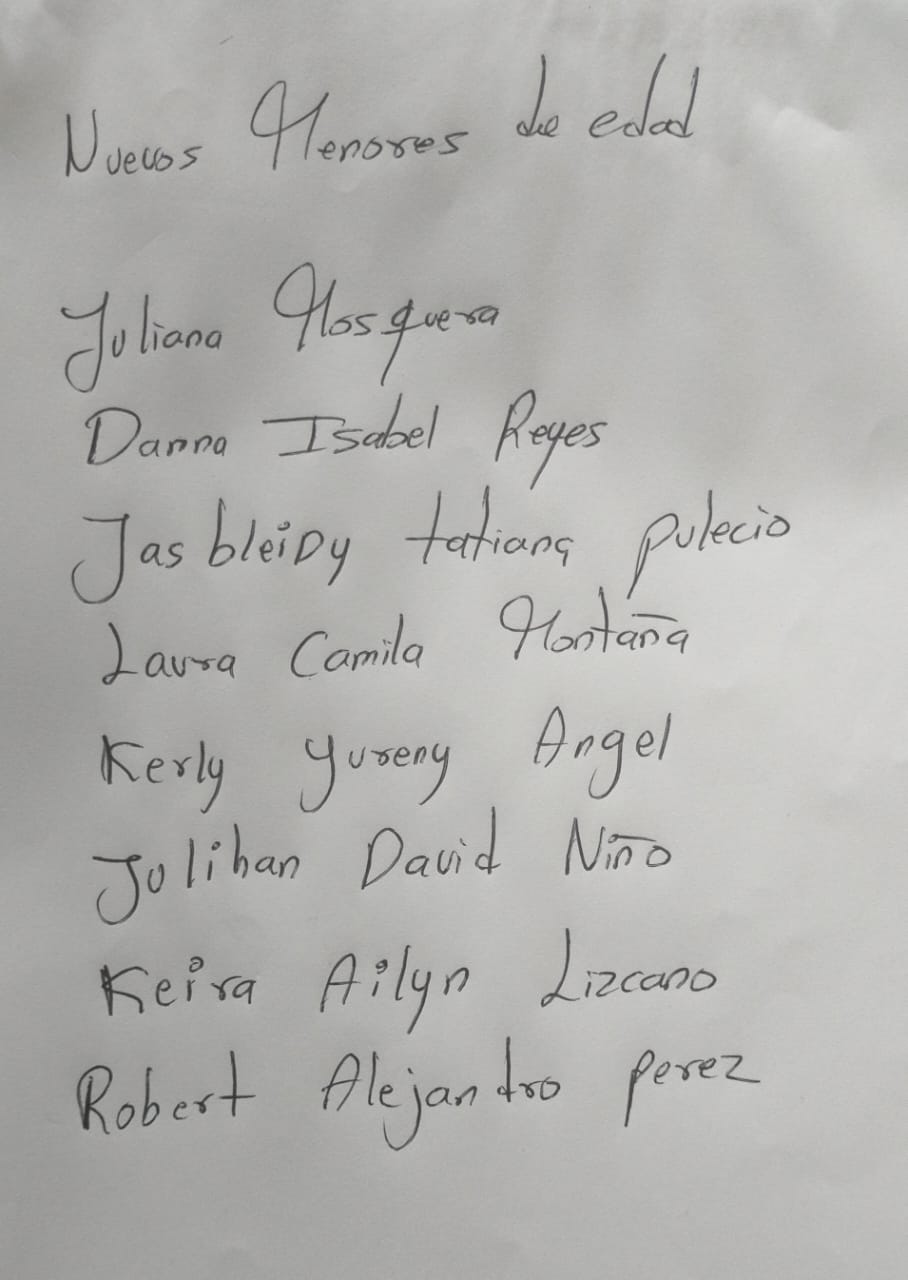 Nuevos Menores de edad
Juliana Mosquera
Danna Isabel Reyes
Jasbleidy tatiana pulecio
Laura Camila Montaña
Kerly yureny Angel
Julihan David Niño
Keira Ailyn Lizcano
Robert Alejandro perez